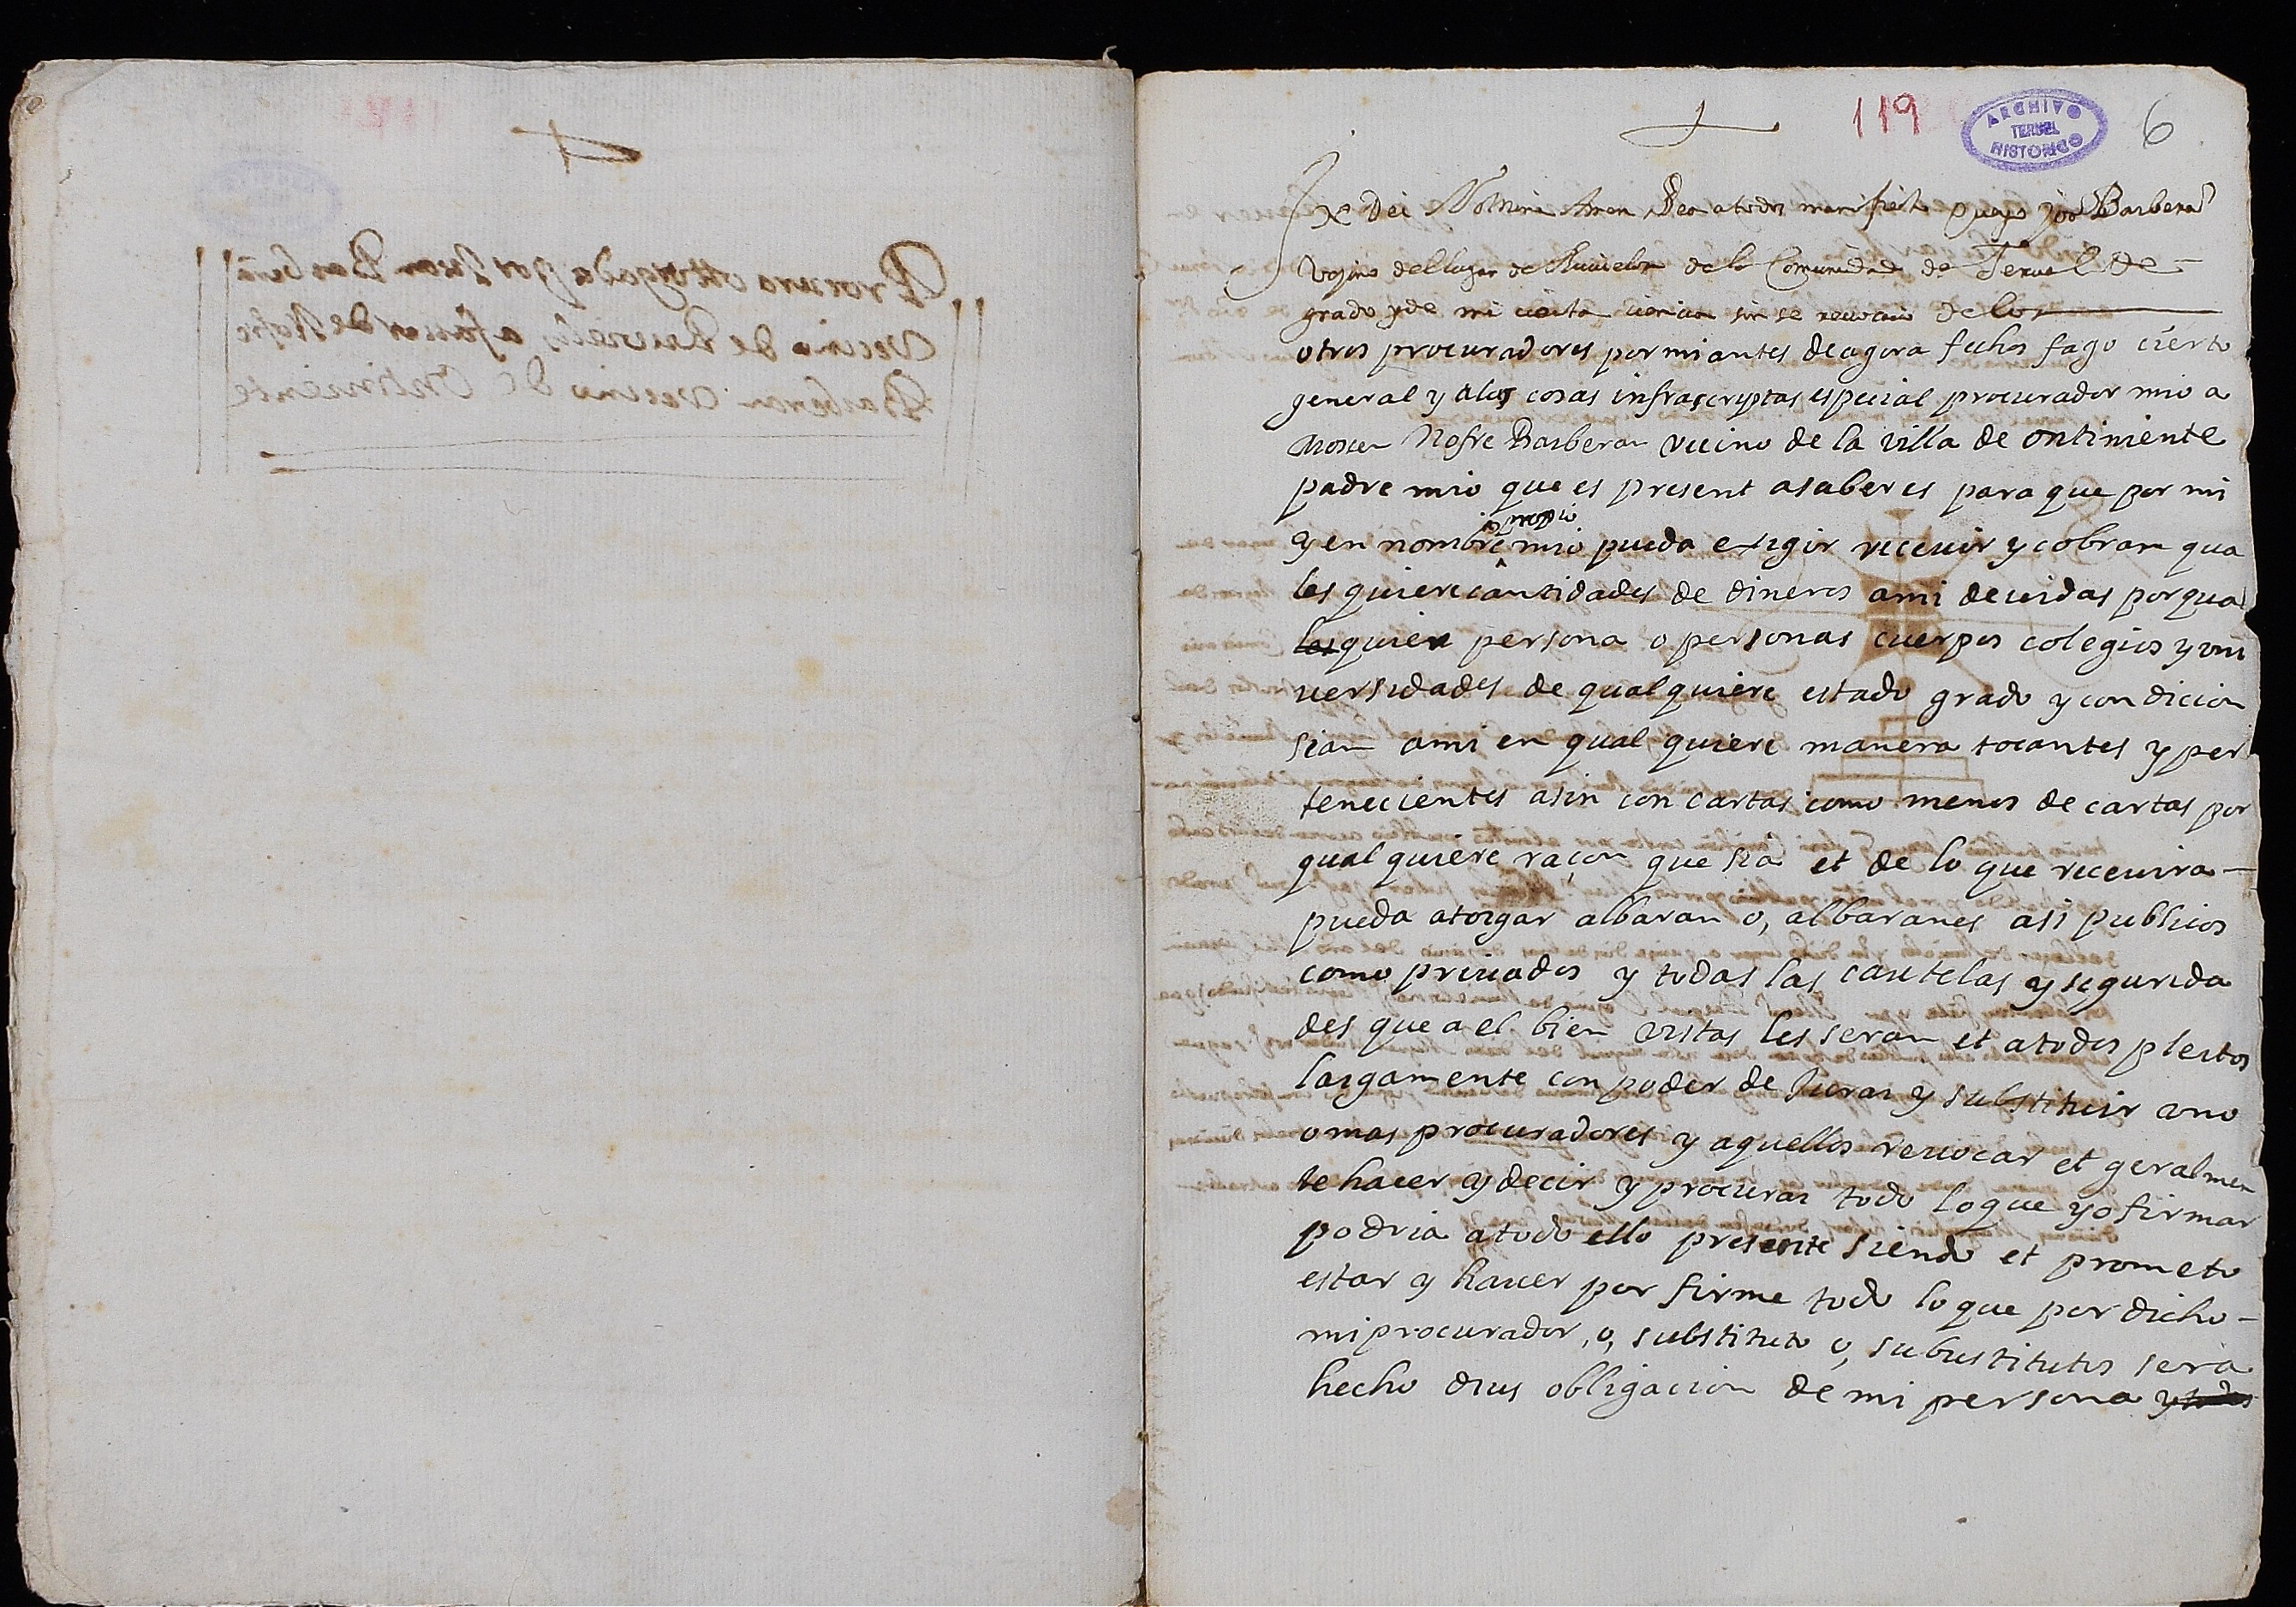 119
ARCHIVO
TERUEL
HISTORICO
6
In Dei Nomine Amen Sea a todos manifiesto que yo Joā Barberā
Vezino del lugar de Ruuielos de la Comunidad de Teruel de
grado y de mi cierta ciencia sin se reuocacio de los
otros procuradores por mi antes de agora fechos fago cierto
general y a las cosas infrascriptas especial procurador mio a
Mosen Nofre Barberan vecino de la villa de ontiniente
padre mio que es present a saber es para que por mi
propio
y en nombre mio pueda exigir receuir y cobrar qua
les quiere cantidades de dineros a mi deuidas por qual
les quier persona o personas cuerpos colegios y vni
uersidades de qual quiere estado grado y condicion
sian a mi en qual quiere manera tocantes y per
tenecientes asin con cartas como menos de cartas por
qual quiere raçon que sia et de lo que receuira
pueda atorgar albaran o, albaranes asi publicos
como priuados y todas las cautelas y segurida
des que a el bien vistas les seran et a todos pleitos
largamente con poder de Jurar y substituir vno
o mas procuradores y aquellos reuocar et geralmen
te hacer y decir y procurar todo lo que yo firmar
podria a todo ello presente siendo et prometo
estar y hauer por firme todo lo que por dicho
mi procurador, o, substituto o, subustitutos sera
hecho dius obligacion de mi persona y todos
Procura ottorgada por Juan Barberā
vecino de Ruuielos a fauor de Nofre
Barberan vecino de Ontiniente